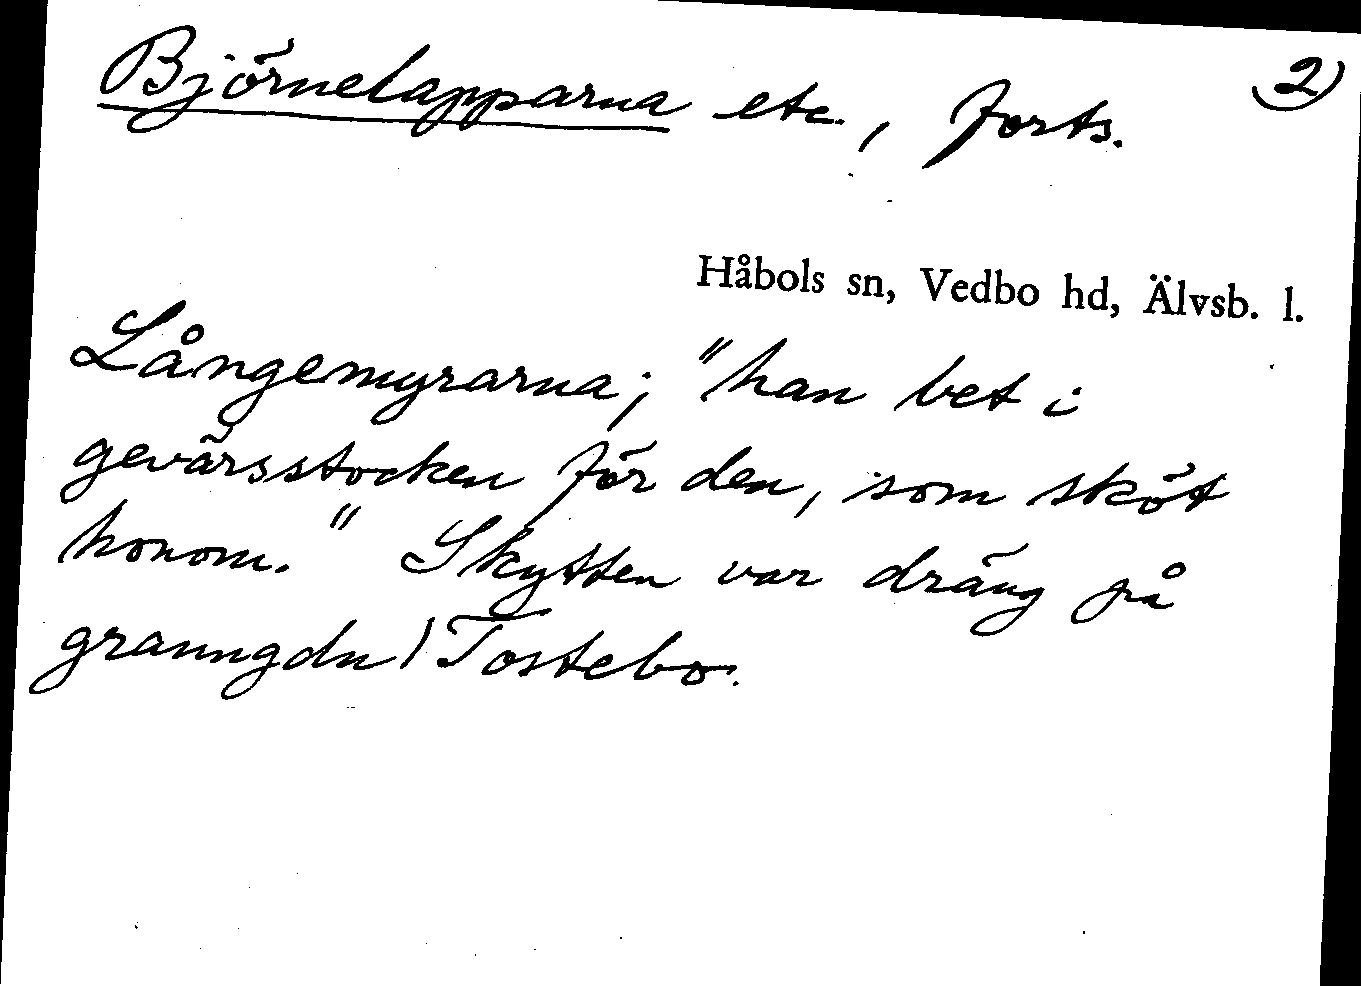 Björnelapparna etc., forts. 2)
Håbols sn, Vedbo hd, Älvsb. l.
Långemyrarna; "han bet i
gevärsstocken för den, som sköt
honom." Skytten var dräng på
granngdn / Tostebo.